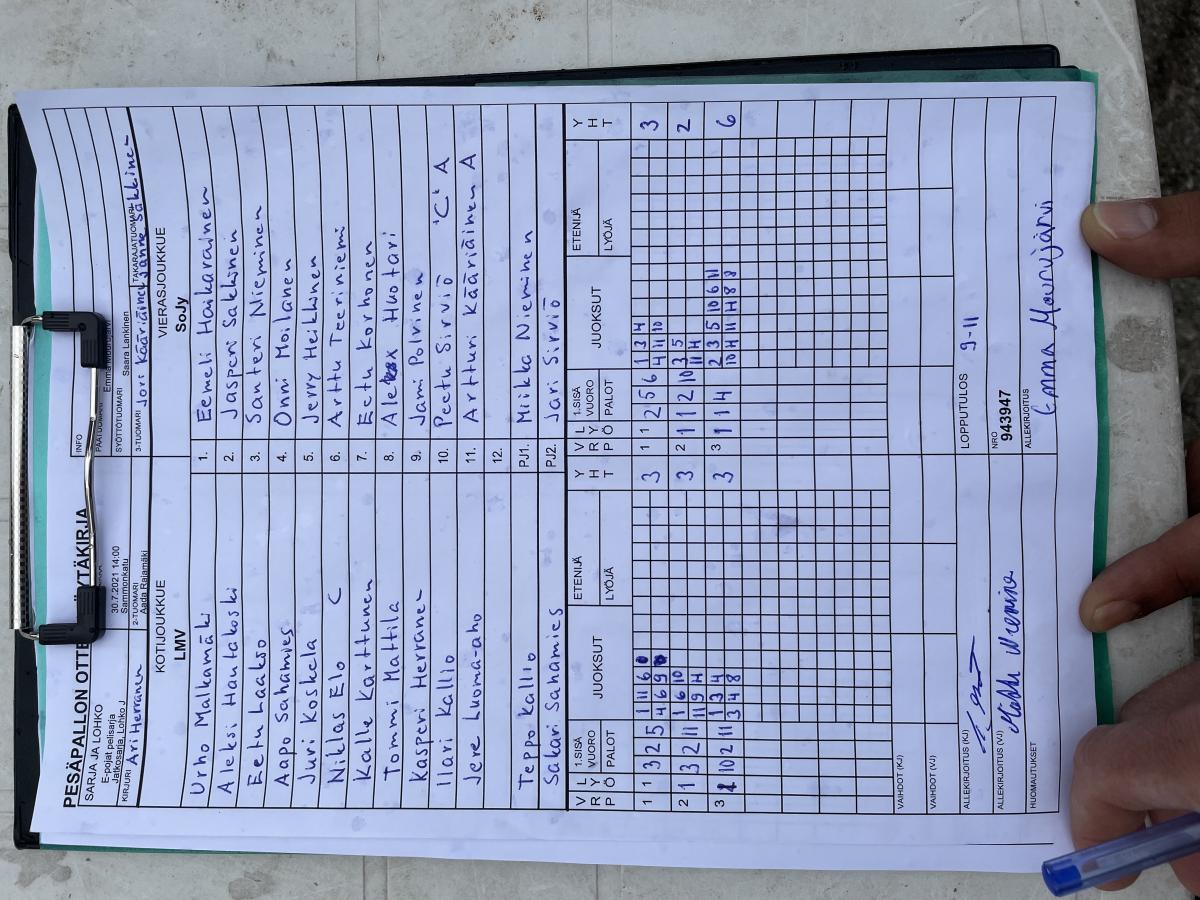 PESÄPALLON OTTE YTÄKIRJA
SARJA JA LOHKO
E-pojat pelisarja
Jatkosarja, Lohko J
30.7.2021 14:00
Sammonkatu
INFO
PÄÄTUOMARI
SYÖTTÖTUOMARI Saara Lankinen
KIRJURI Ari Herranen
2-TUOMARI Aada Rajamäki
3-TUOMARI Jori Kääriäinen
TAKARAJATUOMARI Janne Säkkinen
KOTIJOUKKUE VIERASJOUKKUE
LMV SoJy
Urho Malkamäki 1. Eemeli Haikarainen
Aleksi Hautakoski 2. Jasperi Sakkinen
Eetu Laakso 3. Santeri Nieminen
Aapo Sahamies 4. Onni Moilanen
Juri Koskela 5. Jerry Heikkinen
Niklas Elo C 6. Arttu Teeriniemi
Kalle Karttunen 7. Eetu Korhonen
Tommi Mattila 8. Alex Huotari
Kasperi Herranen 9. Jami Polvinen
Ilari Kallio 10. Peetu Sirviö 'C' A
Jere Luoma-aho 11. Artturi Kääriäinen A
12.
Teppo Kallio PJ1. Miikka Nieminen
Sakari Sahamies PJ2. Jari Sirviö
V R P L Y Ö 1.SISÄ VUORO PALOT JUOKSUT ETENIJÄ LYÖJÄ Y H T V R P L Y Ö 1.SISÄ VUORO PALOT JUOKSUT ETENIJÄ LYÖJÄ Y H T
1 1 3 2 5 1 11 6 3 1 1 2 5 6 1 3 4 3
4 6 9 4 11 10
2 1 3 2 11 1 6 10 3 2 1 1 2 10 3 5 2
11 9 11 11 4
3 10 2 11 1 3 4 3 3 1 1 4 2 3 5 10 6 11 6
3 4 8 10 11 11 4 8 8
VAIHDOT (KJ)
VAIHDOT (VJ)
ALLEKIRJOITUS (KJ) LOPPUTULOS 9-11
ALLEKIRJOITUS (VJ) Miikka Nieminen NRO 943947
HUOMAUTUKSET ALLEKIRJOITUS Emma Mourujärvi